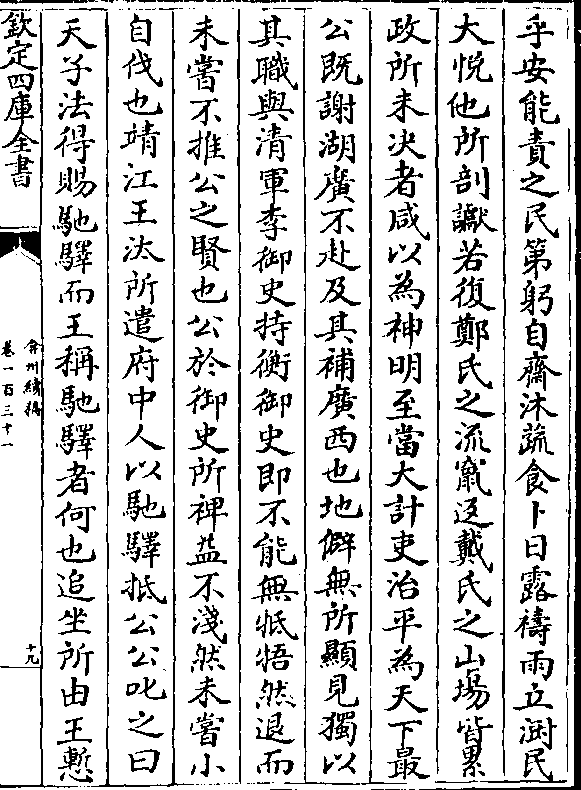 乎安能責之民第躬自齋沐蔬食卜日露禱雨立澍民
大悦他所剖讞若復鄭氏之流竄返戴氏之山塲皆累
政所未決者咸以為神明至當大計吏治平為天下最
公既謝湖廣不赴及其補廣西也地僻無所顯見獨以
其職與清軍李御史持衡御史即不能無牴牾然退而
未嘗不推公之賢也公於御史所裨益不淺然未嘗小
自伐也靖江王汰所遣府中人以馳驛抵公公叱之曰
天子法得賜馳驛而王稱馳驛者何也追坐所由王慙
欽定四庫全書
弇州續稿
卷一百三十一
十九